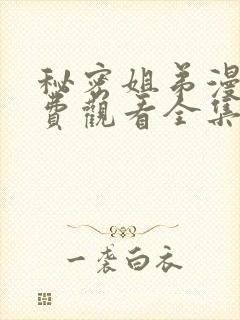 秘密姐弟漫
費觀看全集
一袭白衣